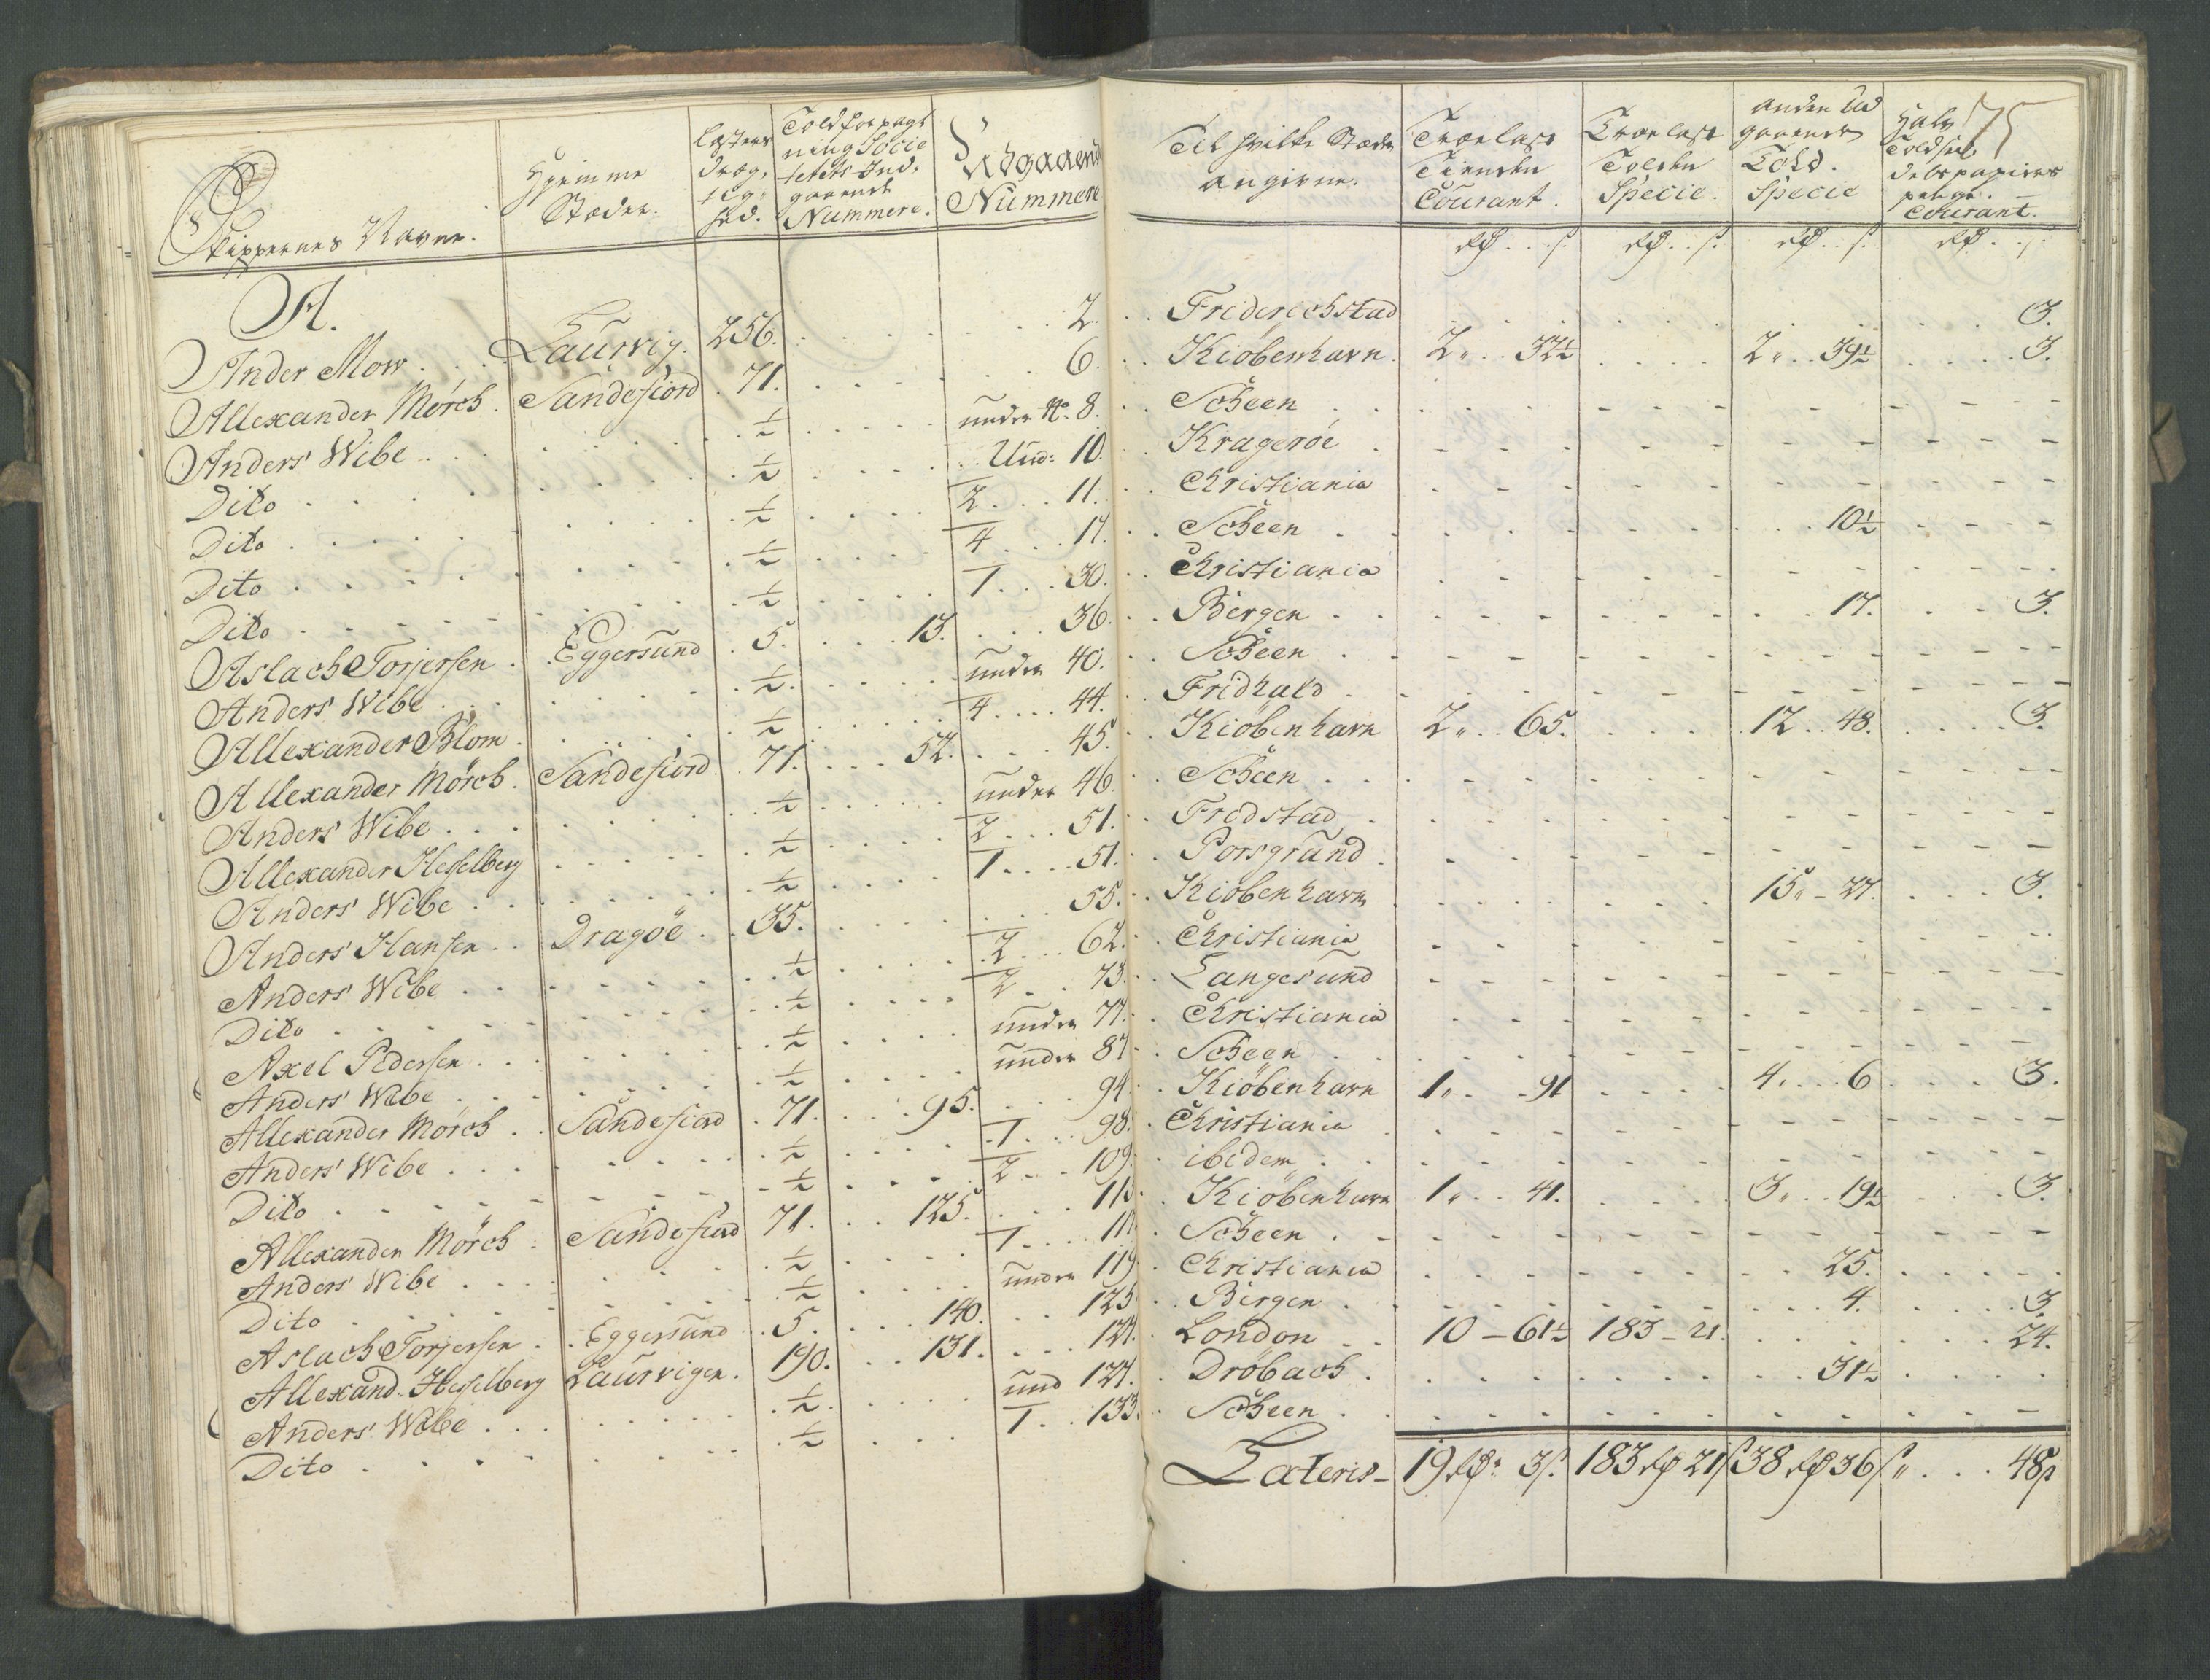 75
Skippernes Navne.
Hjemme Stæder.
Læsters Dræg, tig, hed.
Toldforpagt ning Socie tetets Ind, gaaende Nummere.
Udgaaende Nummere
Til hvilke Stæder angivne.
Trælast Tienden Courant.
Trælast Tolden Specie.
anden Ud gaaende Told. Specie
Halv Told Courant.
A.
Ander Mow . . . Laurvig. 256. . . . . 2. . . Friderichstad . . . . 3.
Allexander Mørch. Sandefiord. 71. . . . . 6. . . Kiøbenhavn. 2„ . . 32½ . . . 2„ . . 39½ . . . 3.
Anders Wibe . . . ½ . . . under No. 8. . . Scheen . . . .
Dito . . . ½ . . . Und: 10. . . Kragerøe . . . .
Dito . . . ½ . . . 2 . . . 11. . . Christiania . . . .
Dito . . . ½ . . . 4 . . . 17. . . Scheen . . . 10½ . . .
Dito . . . ½ . . . 1 . . . 30. . . Christiania . . . .
Aslach Torjersen . . Eggersund . 5. . . 13. . . 36. . . Bergen . . . 17. . . 3.
Anders Wibe . . . ½. . . under 40. . . Scheen . . . .
Allexander Blom . . . ½ . . . 4 . . . 44. . . Fridhald . . . .
Allexander Mørch. Sandefiord. 71. . . 52. . . 45. . . Kiøbenhavn 2„ . . 65. . . . 12 . . 48. . . . 3.
Anders Wibe . . . ½ . . . under 46. . . Scheen . . . .
Allexander Hesselberg . . . ½ . . . 2 . . . 51. . . Fridstad . . . .
Anders Wibe . . . ½ . . . 1 . . . 51. . . Porsgrund . . . .
Anders Hansen . . Dragøe . . 35. . . . 55. . . Kiøbenhavn . . . 15„ - 27. . . . 3.
Anders Wibe . . . ½ . . . 2 . . . 62. . . Christiania . . . .
Dito . . . ½ . . . 2 . . . 73. . . Langesund . . . .
Axel Pedersen . . . ½ . . . under 77. . . Christiania . . . .
Anders Wibe . . . ½ . . . under 87. . . Scheen . . . .
Allexander Mørch . . Sandefiord . 71. . . 95. . . 94. . . Kiøbenhavn 1„ . . 91 . . . 4. . . 6 . . . 3.
Anders Wibe . . . ½ . . . 1 . . . 98. . . Christiania . . . .
Dito . . . ½ . . . 2 . . . 109. . . ibidem . . . .
Allexander Mørch . . Sandefiord 71. . . 125. . . 113. . . Kiøbenhavn 1„ . . 41. . . . 3„ . . 19½ . . . 3.
Anders Wibe . . . ½ . . . 1 . . . 117. . . Scheen . . . .
Dito . . . ½ . . . under 119. . . Christiania . . . 25. . . .
Aslach Torjersen . . Eggersund . 5. . . 140. . . 125. . . Bergen . . . 4. . . . 3.
Allexand. Hesselberg Laurvigen. 190. . . 131. . . 127. . . London . . 10 - 61½ 183 - 21. . . . 24.
Anders Wibe . . . ½ . . . und 127. . . Drøbach . . . 31½ . . .
Dito . . . ½ . . . 1 . . . 133. . . Scheen . . . .
Lateris - 19 rd: 3 s. 183 rd 21 s 38 rd 36 s „ . . . 48 s